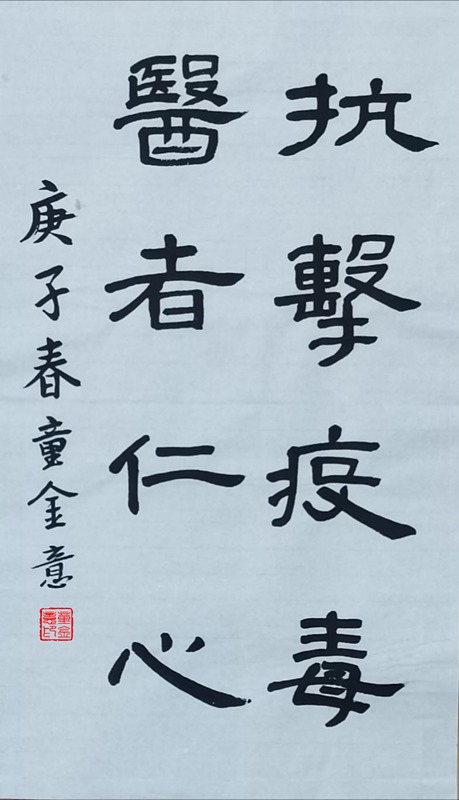 抗擊疫毒
醫者仁心
庚子春童金意
童金意印